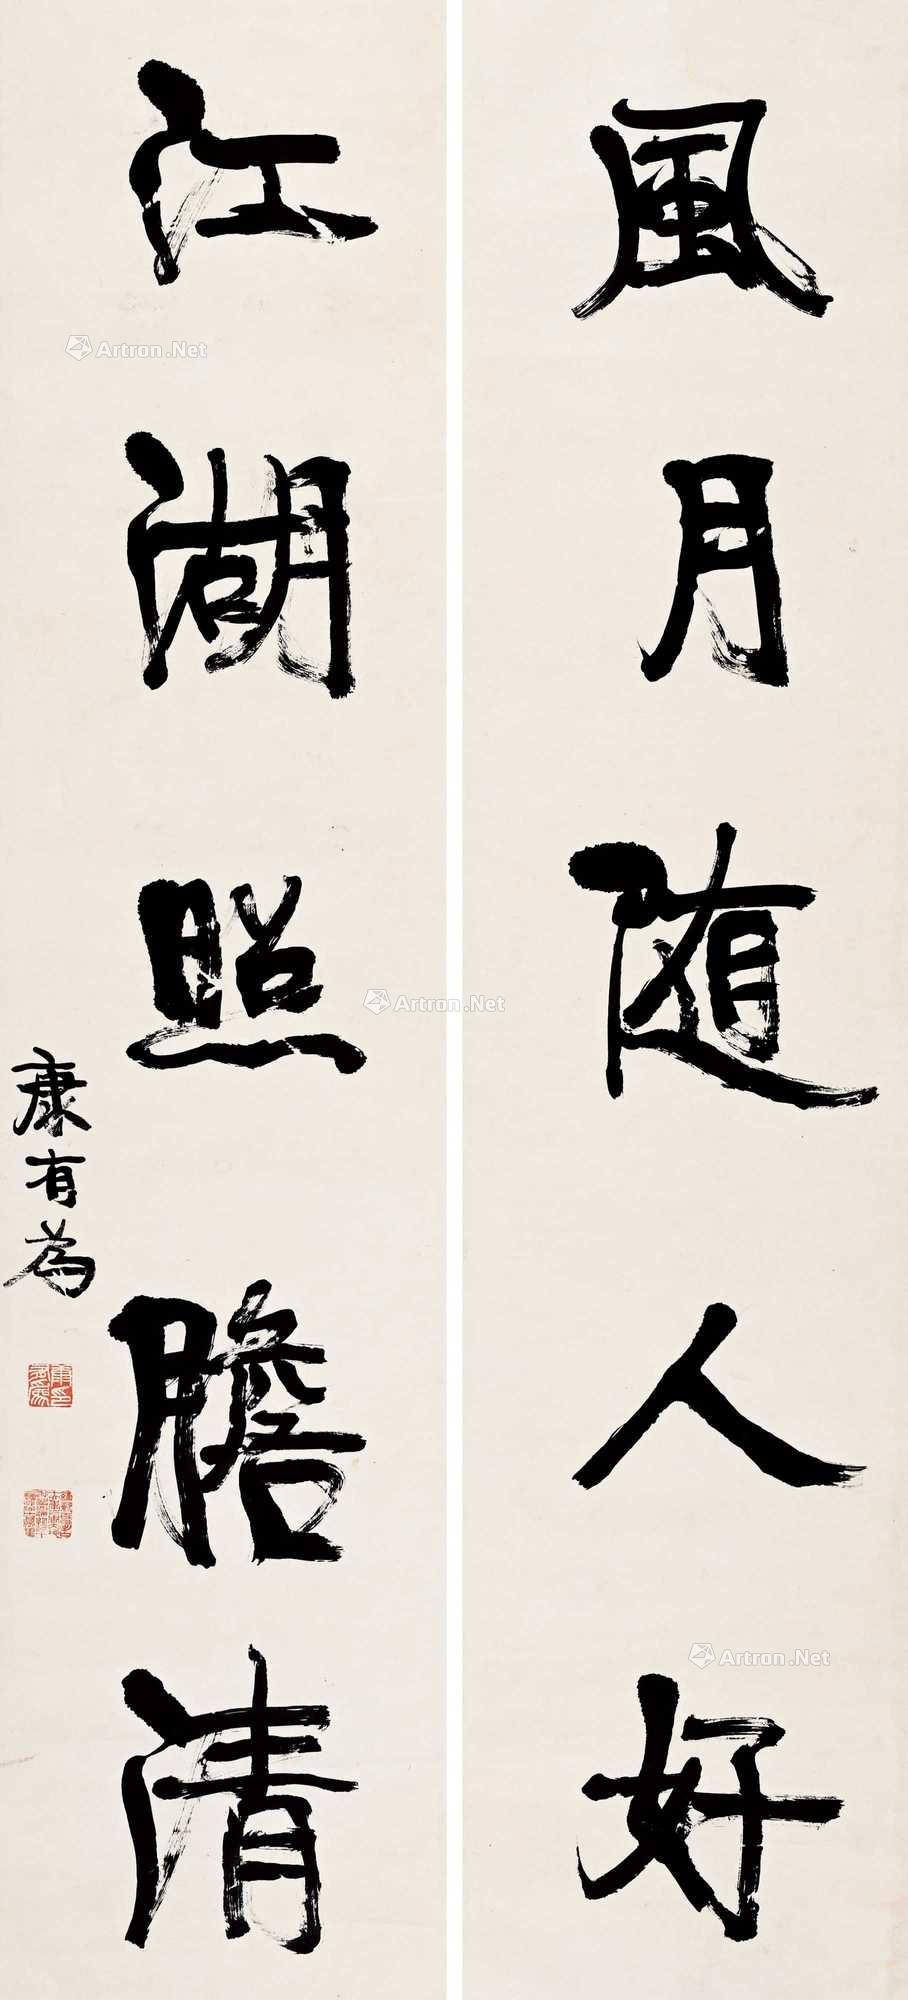 風月随人好
江湖照膽清
康有為
Artron.Net
Artron.Net
Artron.Net